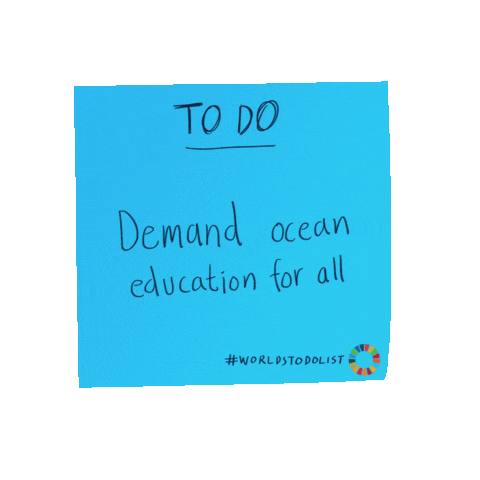 TO DO
Demand ocean
education for all
#WORLDSTODOLIST